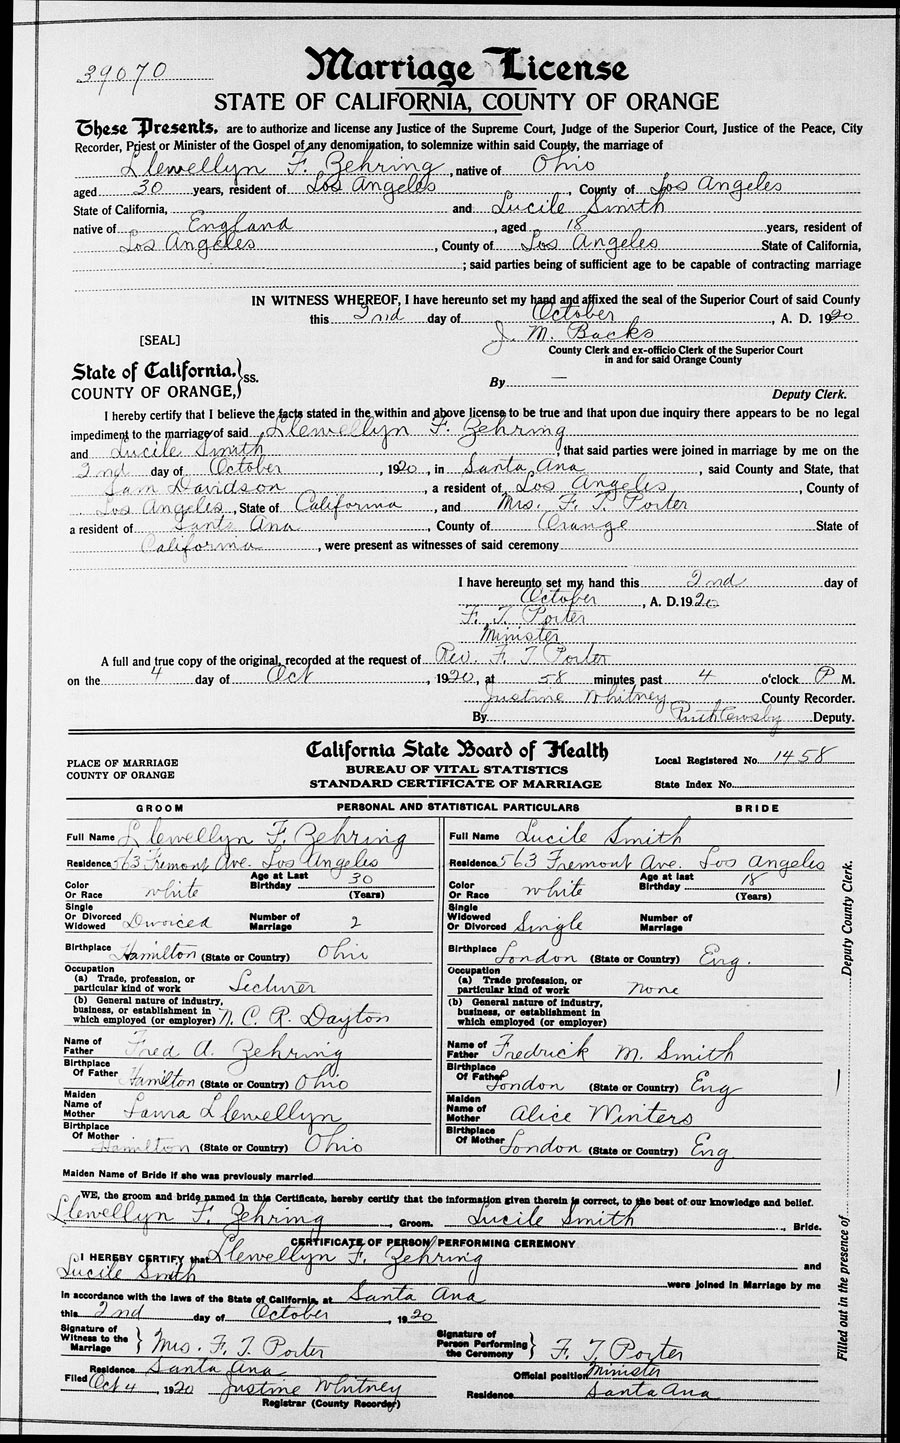 39070
Marriage License
STATE OF CALIFORNIA, COUNTY OF ORANGE
These Presents, are to authorize and license any Justice of the Supreme Court, Judge of the Superior Court, Justice of the Peace, City
Recorder, Priest or Minister of the Gospel of any denomination, to solemnize within said County, the marriage of
Llewellyn F. Zehring, native of Ohio
aged 30 years, resident of Los Angeles, County of Los Angeles
State of California, and Lucile Smith
native of England, aged 18 years, resident of
Los Angeles, County of Los Angeles State of California,
; said parties being of sufficient age to be capable of contracting marriage
IN WITNESS WHEREOF, I have hereunto set my hand and affixed the seal of the Superior Court of said County
this 2nd day of October, A. D. 1920
[SEAL] J. M. Backs
County Clerk and ex-officio Clerk of the Superior Court
in and for said Orange County
State of California,
COUNTY OF ORANGE, } ss.
By —
Deputy Clerk.
I hereby certify that I believe the facts stated in the within and above license to be true and that upon due inquiry there appears to be no legal
impediment to the marriage of said Llewellyn F. Zehring
and Lucile Smith, that said parties were joined in marriage by me on the
2nd day of October, 1920, in Santa Ana, said County and State, that
Sam Davidson, a resident of Los Angeles, County of
Los Angeles, State of California, and Mrs. F. T. Porter
a resident of Santa Ana, County of Orange State of
California, were present as witnesses of said ceremony
I have hereunto set my hand this 2nd day of
October, A. D. 1920
F. T. Porter
Minister
A full and true copy of the original, recorded at the request of Rev. F. T. Porter
on the 4 day of Oct, 1920, at 58 minutes past 4 o'clock P M.
Justine Whitney County Recorder.
By Ruth Deputy.
PLACE OF MARRIAGE
COUNTY OF ORANGE
California State Board of Health
BUREAU OF VITAL STATISTICS
STANDARD CERTIFICATE OF MARRIAGE
Local Registered No. 1458
State Index No.
GROOM PERSONAL AND STATISTICAL PARTICULARS BRIDE
Full Name Llewellyn F. Zehring Full Name Lucile Smith
Residence 563 Fremont Ave. Los Angeles Residence 563 Fremont Ave. Los Angeles
Color Or Race white Age at Last Birthday 30 (Years) Color Or Race white Age at last Birthday 18 (Years)
Single Or Divorced Widowed Divorced Number of Marriage 2 Single Widowed Or Divorced Single Number of Marriage
Birthplace Hamilton (State or Country) Ohio Birthplace London (State or Country) Eng.
Occupation (a) Trade, profession, or particular kind of work Lecturer Occupation (a) Trade profession, or particular kind of work none
(b) General nature of industry, business, or establishment in which employed (or employer) N. C. R. Dayton (b) General nature of industry, business, or establishment in which employed (or employer)
Name of Father Fred A. Zehring Name of Father Fredrick M. Smith
Birthplace Of Father Hamilton (State or Country) Ohio Birthplace Of Father London (State or Country) Eng
Maiden Name of Mother Laura Llewellyn Maiden Name of Mother Alice Winters
Birthplace Of Mother Hamilton (State or Country) Ohio Birthplace Of Mother London (State or Country) Eng.
Maiden Name of Bride if she was previously married
WE, the groom and bride named in this Certificate, hereby certify that the information given therein is correct, to the best of our knowledge and belief.
Llewellyn F. Zehring, Groom. Lucile Smith, Bride.
CERTIFICATE OF PERSON PERFORMING CEREMONY
I HEREBY CERTIFY that Llewellyn F. Zehring and
Lucile Smith were joined in Marriage by me
in accordance with the laws of the State of California, at Santa Ana
this 2nd day of October, 1920
Signature of Witness to the Marriage } Mrs. F. T. Porter Signature of Person Performing the Ceremony } F. T. Porter
Residence Santa Ana Official position Minister
Filed Oct 4, 1920 Justine Whitney Residence Santa Ana
Registrar (County Recorder)
Filled out in the presence of Deputy County Clerk.